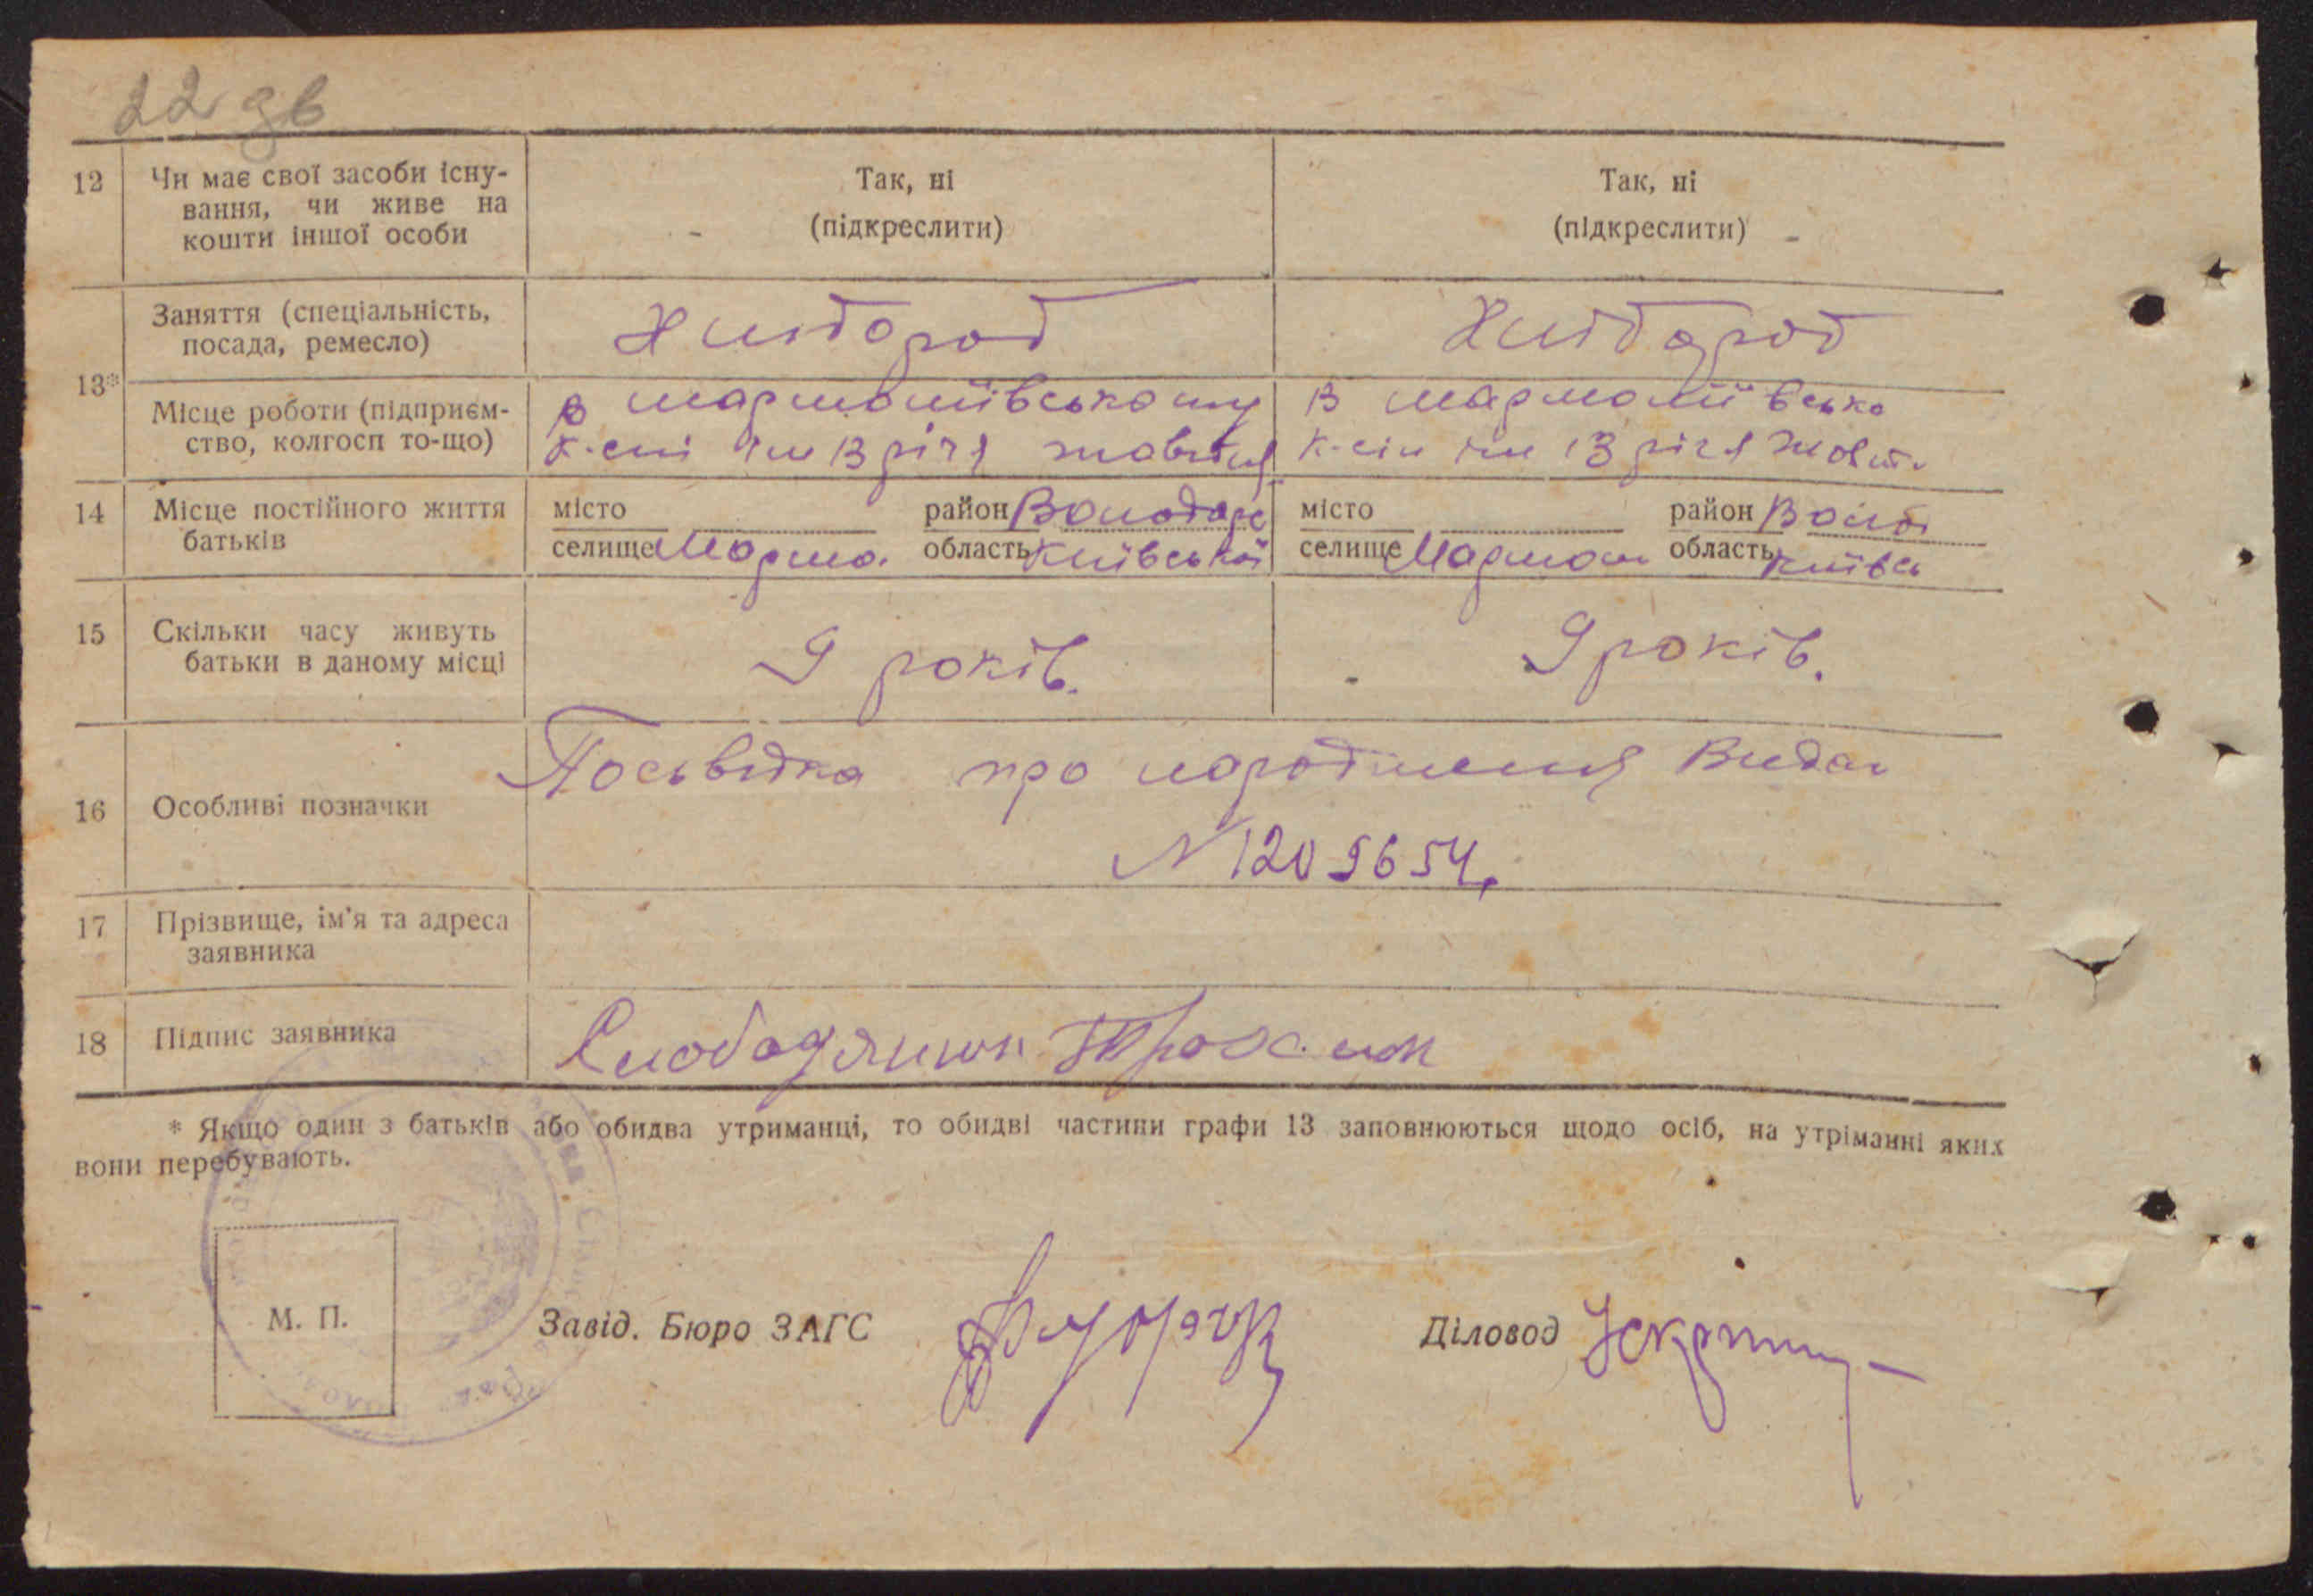 22 зв
12 Чи має свої засоби існу- Так, ні Так, ні
вання, чи живе на (підкреслити) (підкреслити)
кошти іншої особи
Заняття (спеціальність, Хлібороб Хлібороб
посада, ремесло)
13*
Місце роботи (підприєм- в мармоліївському В мармоліївсько
ство, колгосп то-що) к-спі ім 13 річя жовтня к-сіп ім 13 річя Жовт.
14 Місце постійного життя місто район Володарс місто район Воло
батьків селище Мармо. область Київської селище Мармол область Київсь
15 Скільки часу живуть 9 років. 9 років.
батьки в даному місці
Посьвідка про народження Видан
16 Особливі позначки
N 1209654.
17 Прізвище, ім'я та адреса
заявника
18 Підпис заявника Слободянюк
* Якщо один з батьків або обидва утриманці, то обидві частини графи 13 заповнюються щодо осіб, на утріманні яких
вони перебувають.
М. П. Завід. Бюро ЗАГС Діловод